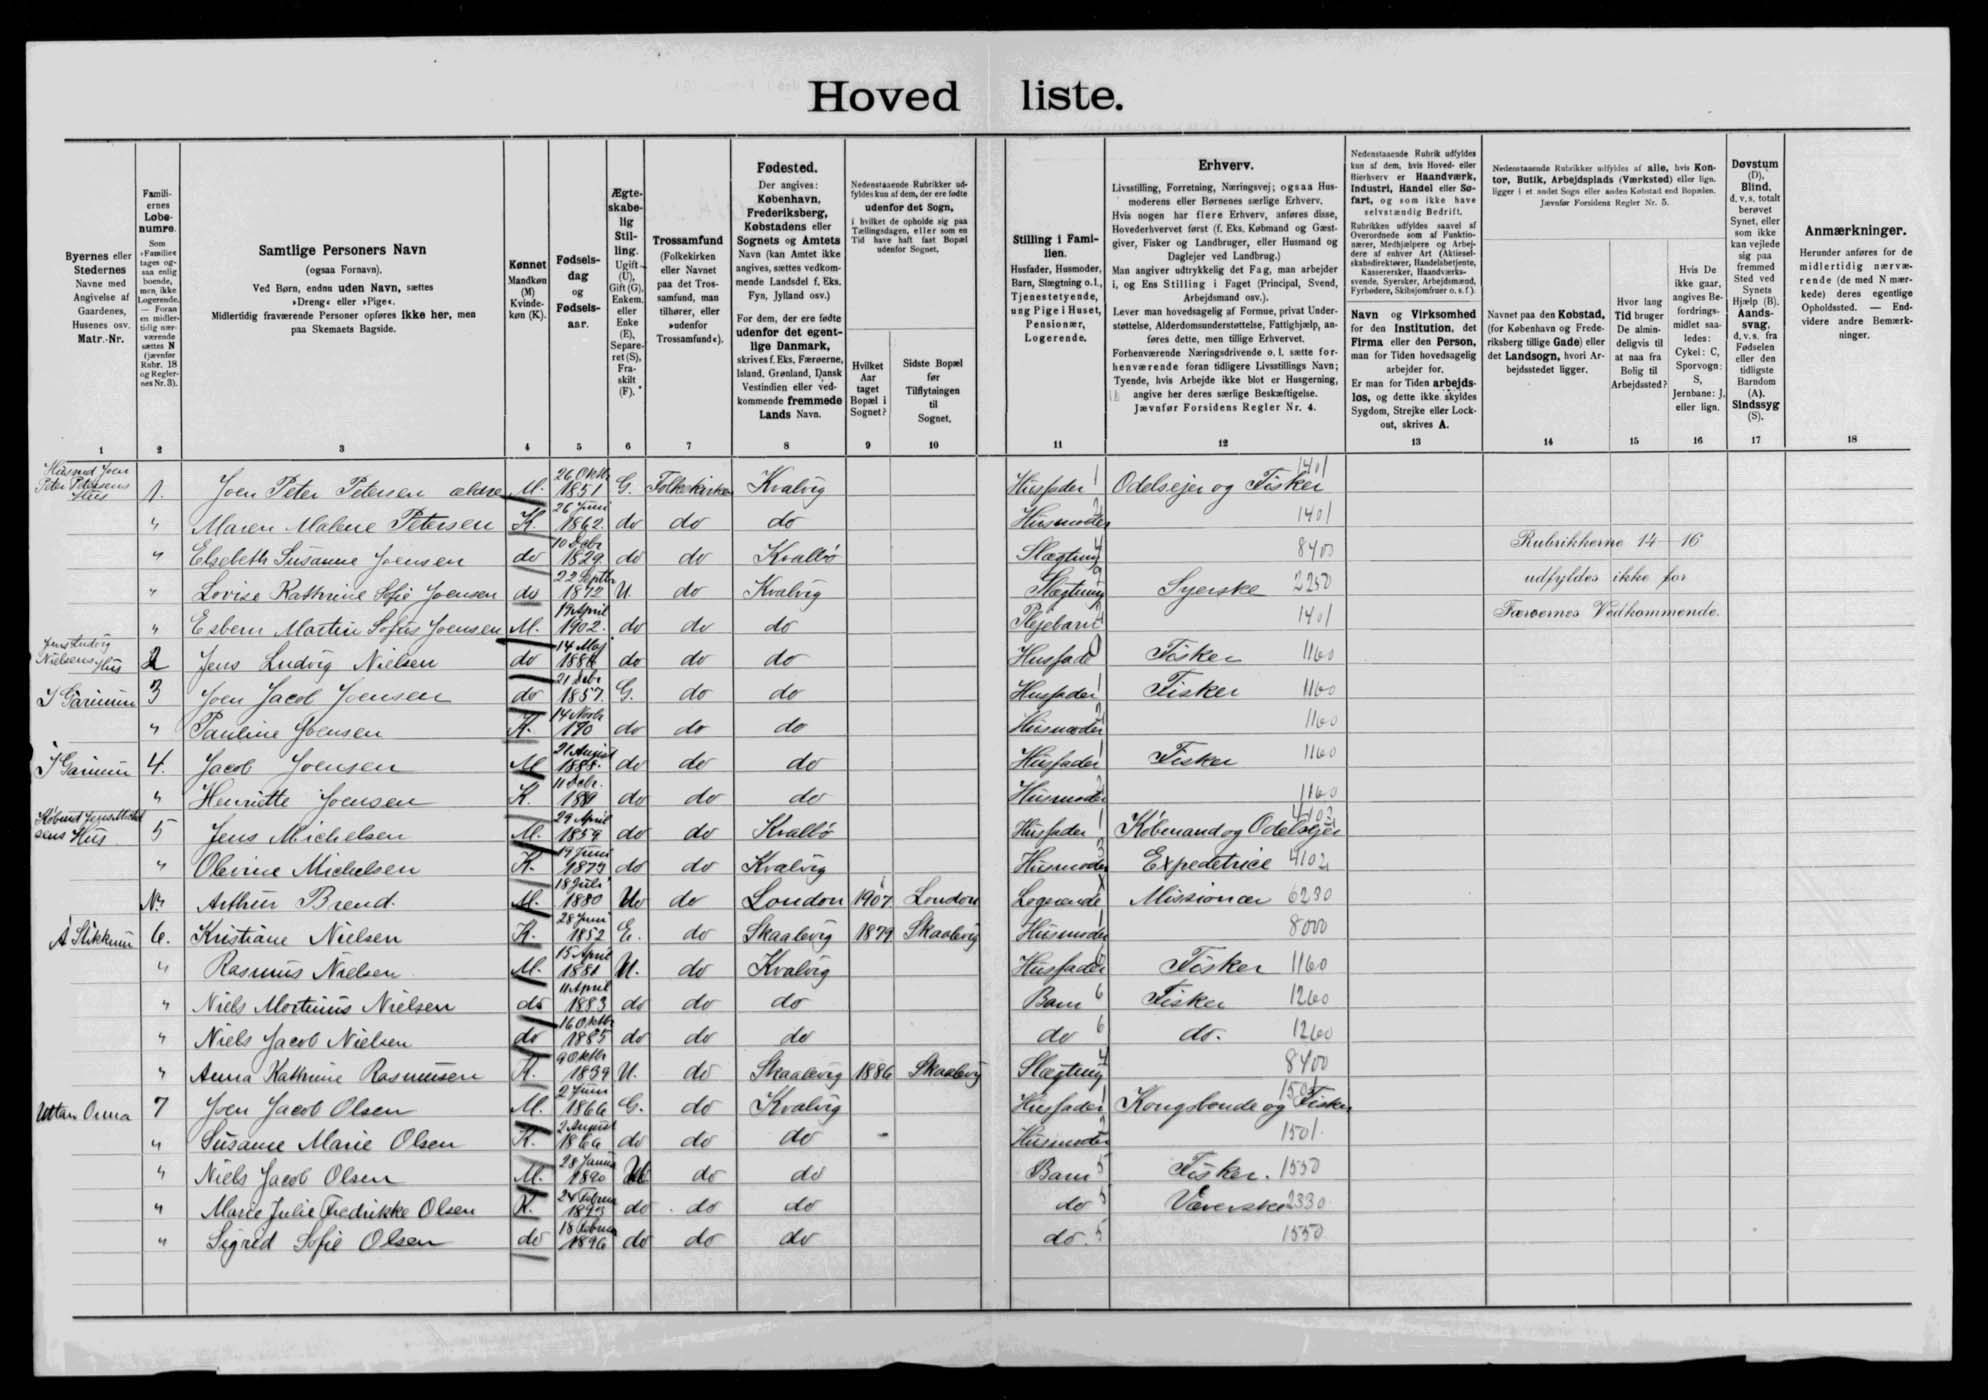 Hovedliste.
Byernes eller Stedernes Navne med Angivelse af Gaardenes, Husenes osv. Matr.-Nr.
Familiernes Løbenumre. Som »Familie« tages ogsaa enlig boende, men ikke Logerende. — Foran en midlertidig nærværende sættes N (jævnfør Rubr. 18 og Reglernes Nr. 3).
Samtlige Personers Navn (ogsaa Fornavn). Ved Børn, endnu uden Navn, sættes »Dreng« eller »Pige«. Midlertidig fraværende Personer opføres ikke her, men paa Skemaets Bagside.
Kønnet Mandkøn (M) Kvindekøn (K).
Fødselsdag og Fødselsaar.
Ægteskabelig Stilling. Ugift (U), Gift (G), Enkem. eller Enke (E), Separeret (S), Fraskilt (F).
Trossamfund (Folkekirken eller Navnet paa det Trossamfund, man tilhører, eller »udenfor Trossamfund«).
Fødested. Der angives: København, Frederiksberg, Købstadens eller Sognets og Amtets Navn (kan Amtet ikke angives, sættes vedkommende Landsdel f. Eks. Fyn, Jylland osv.) For dem, der ere fødte udenfor det egentlige Danmark, skrives f. Eks. Færøerne, Island, Grønland, Dansk Vestindien eller vedkommende fremmede Lands Navn.
Nedenstaaende Rubrikker udfyldes kun af dem, der ere fødte udenfor det Sogn, i hvilket de opholde sig paa Tællingsdagen, eller som en Tid have haft fast Bopæl udenfor Sognet.
Hvilket Aar taget Bopæl i Sognet?
Sidste Bopæl før Tilflytningen til Sognet.
Stilling i Familien. Husfader, Husmoder, Barn, Slægtning o. l., Tjenestetyende, ung Pige i Huset, Pensionær, Logerende.
Erhverv. Livsstilling, Forretning, Næringsvej; ogsaa Husmoderens eller Børnenes særlige Erhverv. Hvis nogen har flere Erhverv, anføres disse, Hovederhvervet først (f. Eks. Købmand og Gæstgiver, Fisker og Landbruger, eller Husmand og Daglejer ved Landbrug.) Man angiver udtrykkelig det Fag, man arbejder i, og Ens Stilling i Faget (Principal, Svend, Arbejdsmand osv.). Lever man hovedsagelig af Formue, privat Understøttelse, Alderdomsunderstøttelse, Fattighjælp, anføres dette, men tillige Erhverv. Forhenværende Næringsdrivende o. l. sætte forhenværende foran tidligere Livsstillings Navn; Tyende, hvis Arbejde ikke blot er Husgerning, angive her deres særlige Beskæftigelse. Jævnfør Forsidens Regler Nr. 4.
Nedenstaaende Rubrik udfyldes kun af dem, hvis Hoved- eller Bierhverv er Haandværk, Industri, Handel eller Søfart, og som ikke have selvstændig Bedrift.
Rubrikken udfyldes saavel af Overordnede som af Funktionærer, Medhjælpere og Arbejdere af enhver Art (Aktieselskabsdirektører, Handelsbetjente, Kasserersker, Haandværkssvende, Syersker, Arbejdsmænd, Fyrbødere, Skibsjomfruer o. s. f.).
Navn og Virksomhed for den Institution, det Firma eller den Person, man for Tiden hovedsagelig arbejder for. Er man for Tiden arbejdsløs, og dette ikke skyldes Sygdom, Strejke eller Lockout, skrives A.
Nedenstaaende Rubrikker udfyldes af alle, hvis Kontor, Butik, Arbejdsplads (Værksted) eller lign. ligger i et andet Sogn eller anden Købstad end Bopælen. Jævnfør Forsidens Regler Nr. 5.
Navnet paa den Købstad, (for København og Frederiksberg tillige Gade) eller det Landsogn, hvori Arbejdsstedet ligger.
Hvor lang Tid bruger De almindeligvis til at naa fra Bolig til Arbejdssted?
Hvis De ikke gaar, angives Befordringsmidlet saaledes: Cykel: C, Sporvogn: S, Jernbane: J, eller lign.
Døvstum (D), Blind, d. v. s. totalt berøvet Synet, eller som ikke kan vejlede sig paa fremmed Sted ved Synets Hjælp (B). Aandssvag, d. v. s. fra Fødselen eller den tidligste Barndom (A). Sindssyg (S).
Anmærkninger. Herunder anføres for de midlertidig nærværende (de med N mærkede) deres egentlige Opholdssted. — Endvidere andre Bemærkninger.
1 2 3 4 5 6 7 8 9 10 11 12 13 14 15 16 17 18
Husmd Joen Peter Petersens Hus 1. Joen Peter Petersen ældre M. 26 Oktbr 1851 G. Folkekirken Kvalvig Husfader 1 Odelsejer og Fisker 1401
" Maren Malene Petersen K. 26 Juni 1862 do do do Husmoder 2 1401
" Elsebeth Susanne Joensen do 10 Debr 1829 do do Kvallö Slægtning 4 8400 Rubrikkerne 14-16
" Lovise Kathrine Sofie Joensen do 22 Septbr 1872 U. do Kvalvig Slægtning Syerske 2250 udfyldes ikke for
" Esbern Martin Sofus Joensen M. 19 April 1902. do do do Plejebarn 1401 Færøernes Vedkommende.
Jens Ludvig Nielsens Hus 2 Jens Ludvig Nielsen do 14 Maj do do do Husfade Fisker 1160
I Garinum 3 Joen Jacob Joensen do 21 Debr 1857. G. do do Husfader 1 Fisker 1160
" Pauline Joensen K. 14 Novbr do do do Husmoder 2 1160
I Garinum 4. Jacob Joensen M 21 August 1885. do do do Husfader 1 Fisker 1160
" Henriette Joensen K. 11 Debr. do do do Husmoder 2 1160
Købmd Jens Michelsens Hus 5 Jens Michelsen M. 29 April 1859 do do Kvallö Husfader 1 Købmand og Odelsejer 4102
" Olevine Michelsen K. 19 Juni 1879 do do Kvalvig Husmoder 3 Expedetrice 4102
N. Arthur Brend. M. 18 Juli 1880 do London 1907 London Logerende Missionær 6230
Á Slikkrum 6. Kristiane Nielsen K. 28 Juni 1852 E. do Skaalevig 1879 Skaalevig Husmoder 8000
" Rasmus Nielsen. M. 15 April 1881 U. do Kvalvig Husfader Fisker 1160
" Niels Mortinus Nielsen do 11 April 1883 do do do Barn 6 Fisker 1260
" Niels Jacob Nielsen do 16 Oktbr 1885 do do do do 6 do. 1260
" Anna Kathrine Rasmussen K. 9 Oktbr 1839 U. do Skaalevig 1886 Skaalevig Slægtning 4 8400
Uttan Onna 7 Joen Jacob Olsen M. 2 Juni 1866 G. do Kvalvig Husfader 1 Kongsbonde og Fisker 1501
" Susanne Marie Olsen K. 2 August 1866 do do do Husmoder 2 1501.
" Niels Jacob Olsen M. 28 Januar 1890 U do do Barn 5 Fisker. 1550
" Marie Julie Fredrikke Olsen K. 24 Februar 1893 do do do do 5 Væverske 2330
" Sigrid Sofie Olsen do 18 Februar 1896 do do do do. 5 1550